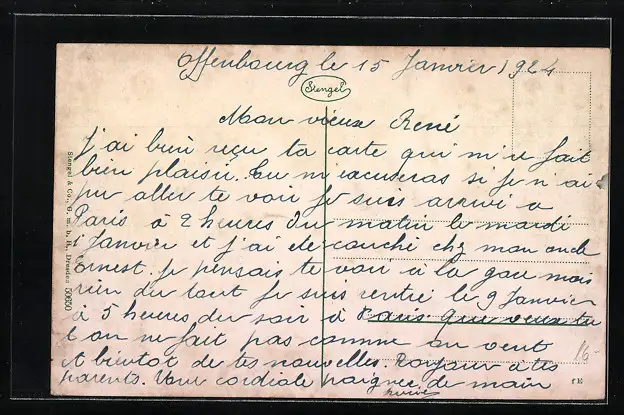 Offenbourg le 15 Janvier 1924
Stengel
Mon vieux René
J'ai bien reçu ta carte qui m'a fait
bien plaisir. Tu m'excuseras si je n'ai
pu aller te voir je suis arrivé a
Paris à 2 heures du matin le mardi
1 Janvier et j'ai été couché chez mon oncle
Ernest. je pensais te voir à la gare mais
rien du tout je suis rentré le 9 Janvier
à 5 heures du soir à Paris que veux tu
on ne fait pas comme on veut
A bientot de tes nouvelles. Bonjour à tes
parents. Une cordiale poignée de main
Stengel & Co., G. m. b. H., Dresden 50050
16-